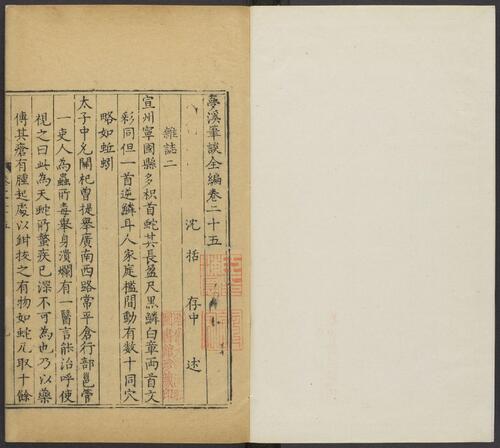 夢溪筆談全編卷二十五
沈括 存中 述
雜誌二
宣州寧國縣多枳首蛇其長盈尺黑鱗白章兩首文
彩同但一首逆鱗耳人家庭檻間動有數十同穴
略如蚯蚓
太子中允關杞曾提舉廣南西路常平倉行部邕管
一吏人為蟲所毒舉身潰爛有一醫言能治呼使
視之曰此為天蛇所螫疾已深不可為也乃以藥
傅其瘡有腫起處以鉗拔之有物如蛇凡取十餘